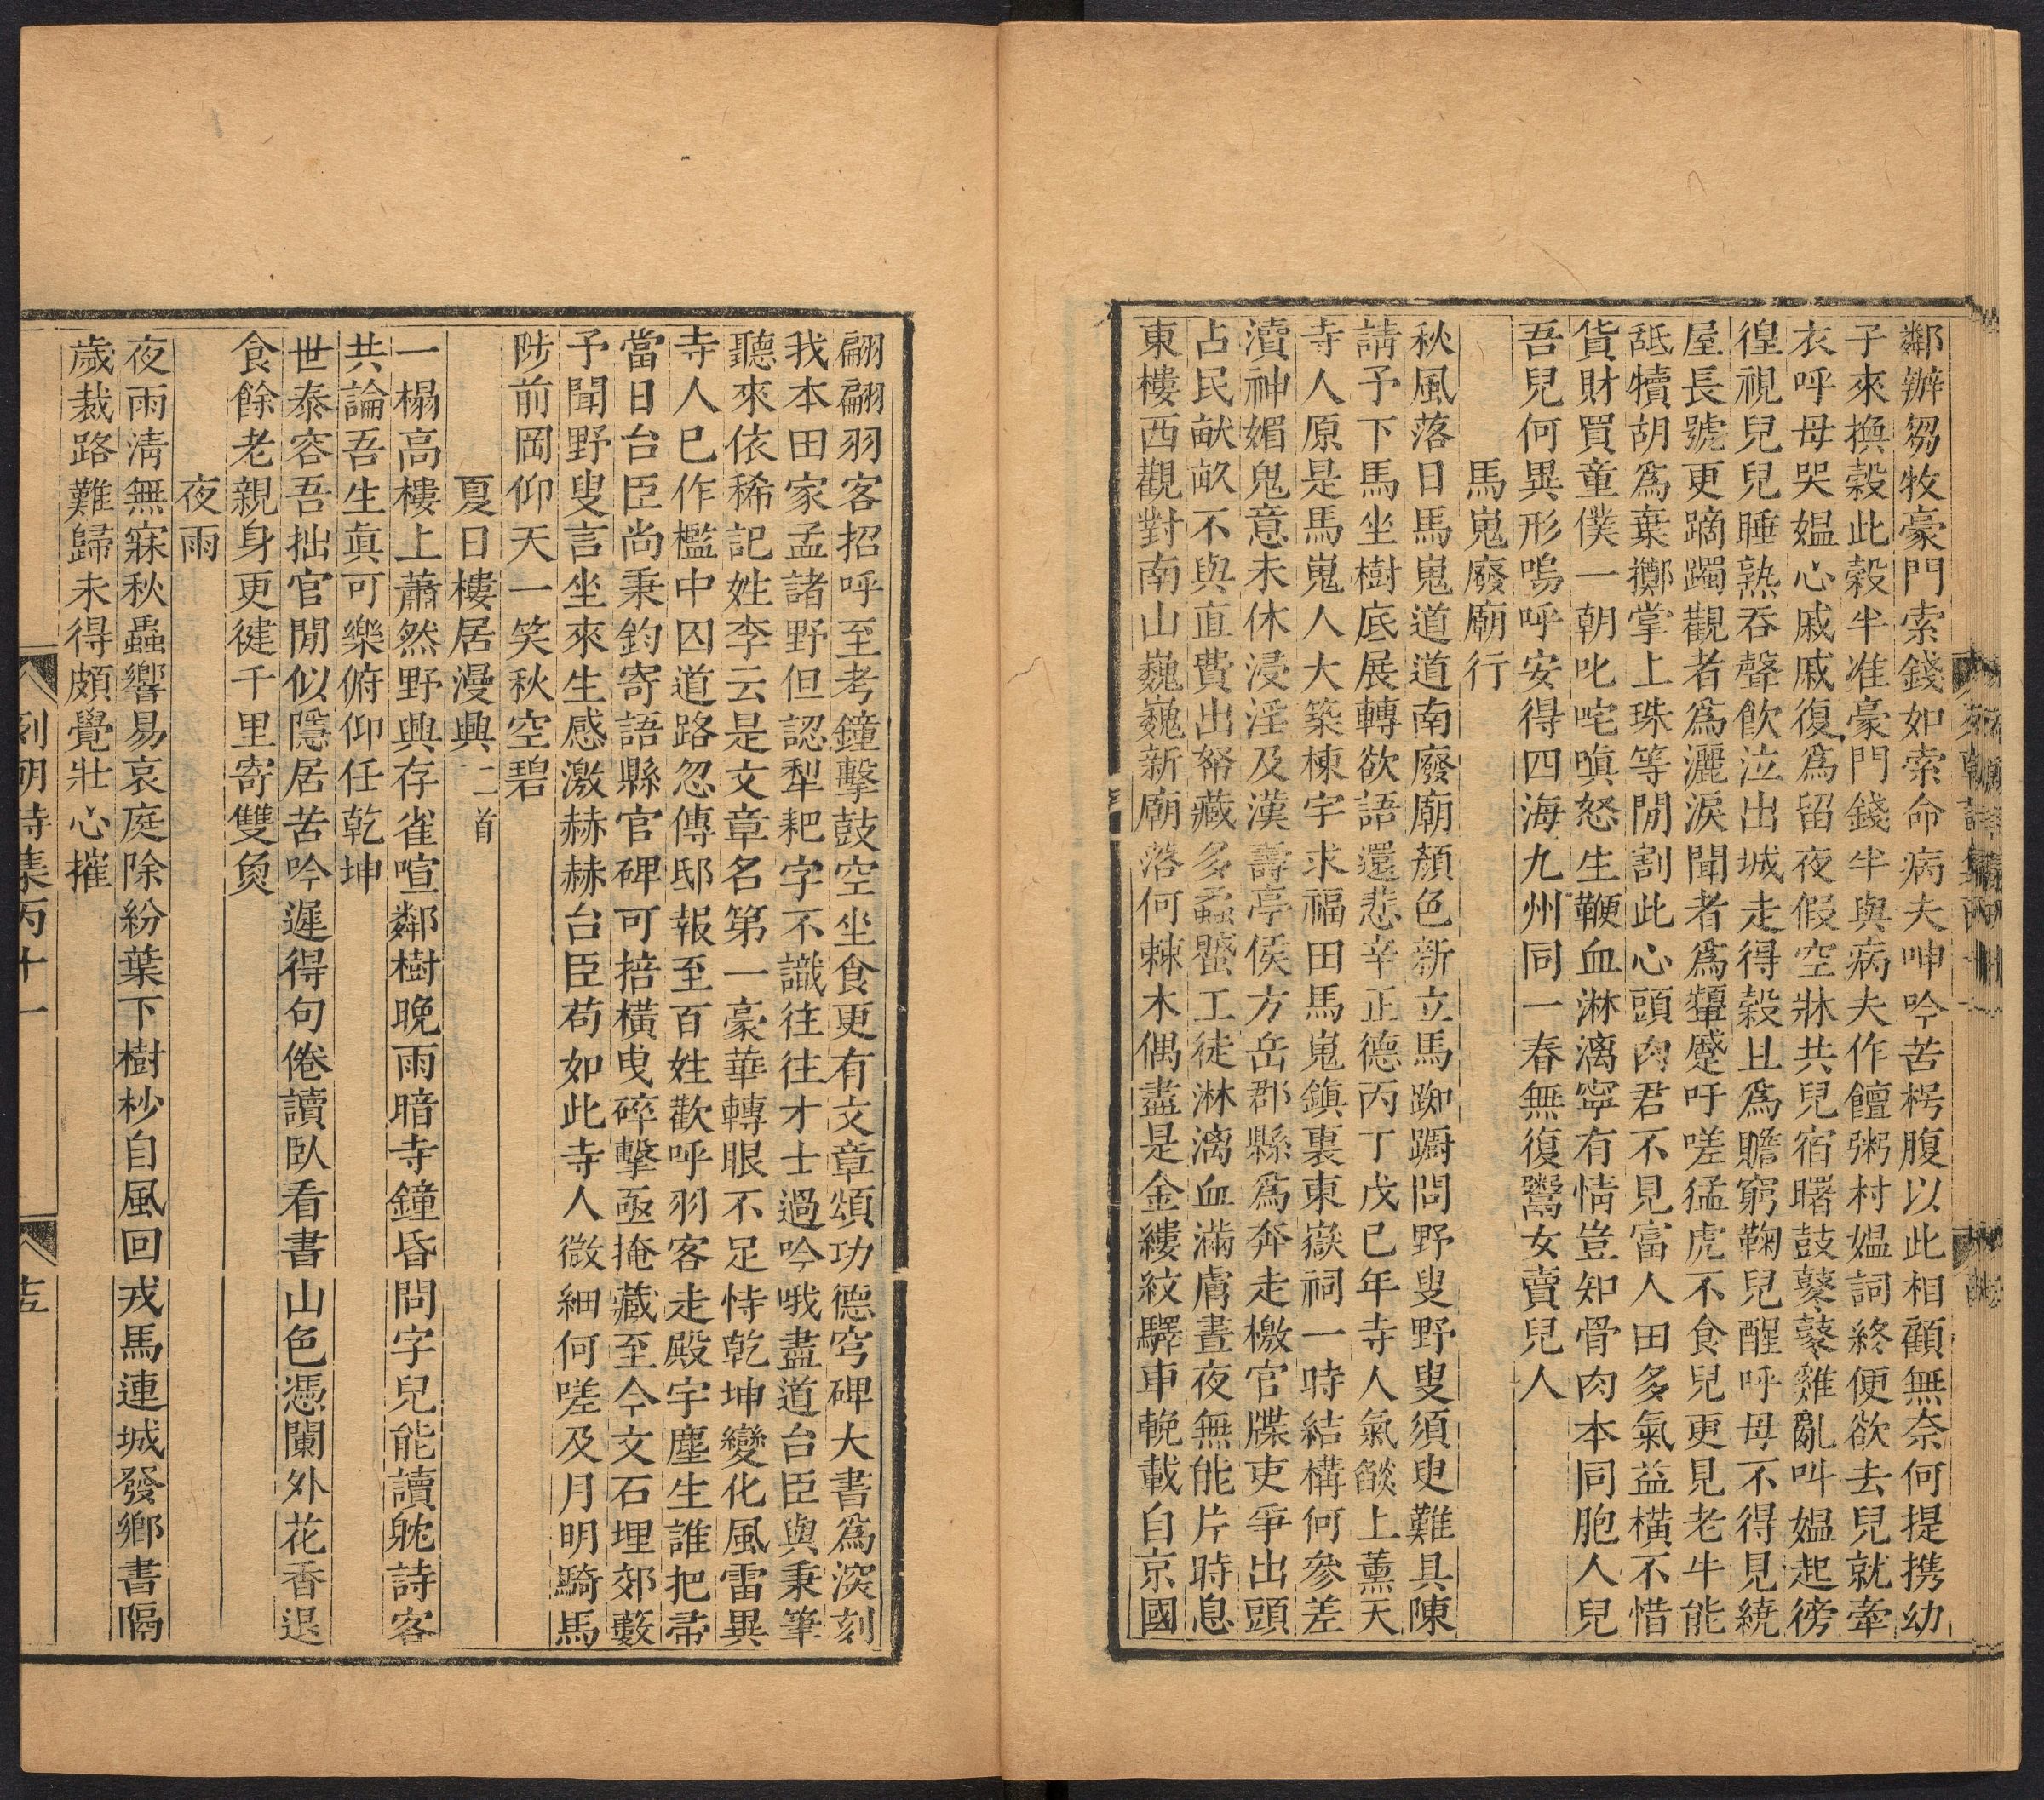 鄰辦芻牧豪門索錢如索命病夫呻吟苦枵腹以此相顧無奈何提携幼
子來換榖此榖半准豪門錢半與病夫作饘粥村媼詞終便欲去兒就牽
衣呼母哭媼心戚戚復爲留夜假空牀共兒宿曙鼓鼕鼕雞亂叫媼起徬
徨視兒兒睡熟吞聲飮泣出城走得榖且爲贍窮鞠兒醒呼母不得見繞
屋長號更蹢躅觀者爲灑淚聞者爲顰蹙吁嗟猛虎不食兒更見老牛能
舐犢胡爲棄擲掌上珠等閒割此心頭肉君不見富人田多氣益橫不惜
貨財買童僕一朝叱咤嗔怒生鞭血淋漓寧有情豈知骨肉本同胞人兒
吾兒何異形嗚呼安得四海九州同一春無復鬻女賣兒人
馬嵬廢廟行
秋風落日馬嵬道道南廢廟顏色新立馬踟躕問野叟野叟須臾難具陳
請予下馬坐樹底展轉欲語還悲辛正德丙丁戊巳年寺人氣燄上薰天
寺人原是馬嵬人大築棟宇求福田馬嵬鎭裏東嶽祠一時結構何參差
瀆神媚鬼意未休浸淫及漢壽亭侯方岳郡縣爲奔走檄官牒吏爭出頭
占民畝畝不與直費出帑藏多蟊蠶工徒淋漓血滿膚晝夜無能片時息
東樓西觀對南山巍巍新廟落何棘木偶盡是金縷紋驛車輓載自京國
翩翩羽客招呼至考鐘擊鼓空坐食更有文章頌功德穹碑大書爲深刻
我本田家孟諸野但認犁耙字不識往往才士過吟哦盡道台臣與秉筆
聽來依稀記姓李云是文章名第一豪華轉眼不足恃乾坤變化風雷異
寺人已作檻中囚道路忽傳邸報至百姓歡呼羽客走殿宇塵生誰把帚
當日台臣尚秉鈞寄語縣官碑可掊橫曳碎擊亟掩藏至今文石埋郊藪
予聞野叟言坐來生感激赫赫台臣苟如此寺人微細何嗟及月明騎馬
陟前岡仰天一笑秋空碧
夏日樓居漫興二首
一榻高樓上蕭然野興存雀喧鄰樹晚雨暗寺鐘昏問字兒能讀躭詩客
共論吾生眞可樂俯仰任乾坤
世泰容吾拙官閒似隱居苦吟遲得句倦讀臥看書山色憑闌外花香退
食餘老親身更健千里寄雙魚
夜雨
夜雨淸無寐秋蟲響易哀庭除紛葉下樹杪自風回戎馬連城發鄉書隔
歲裁路難歸未得頗覺壯心摧
列朝詩集丙十一
十五